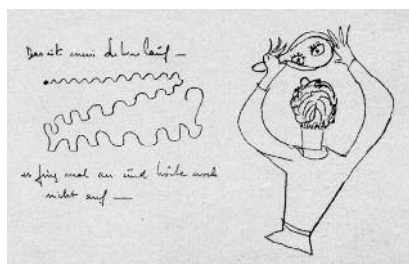 Das ist mein Lebenslauf —
es fing mal an und hörte noch
nicht auf —